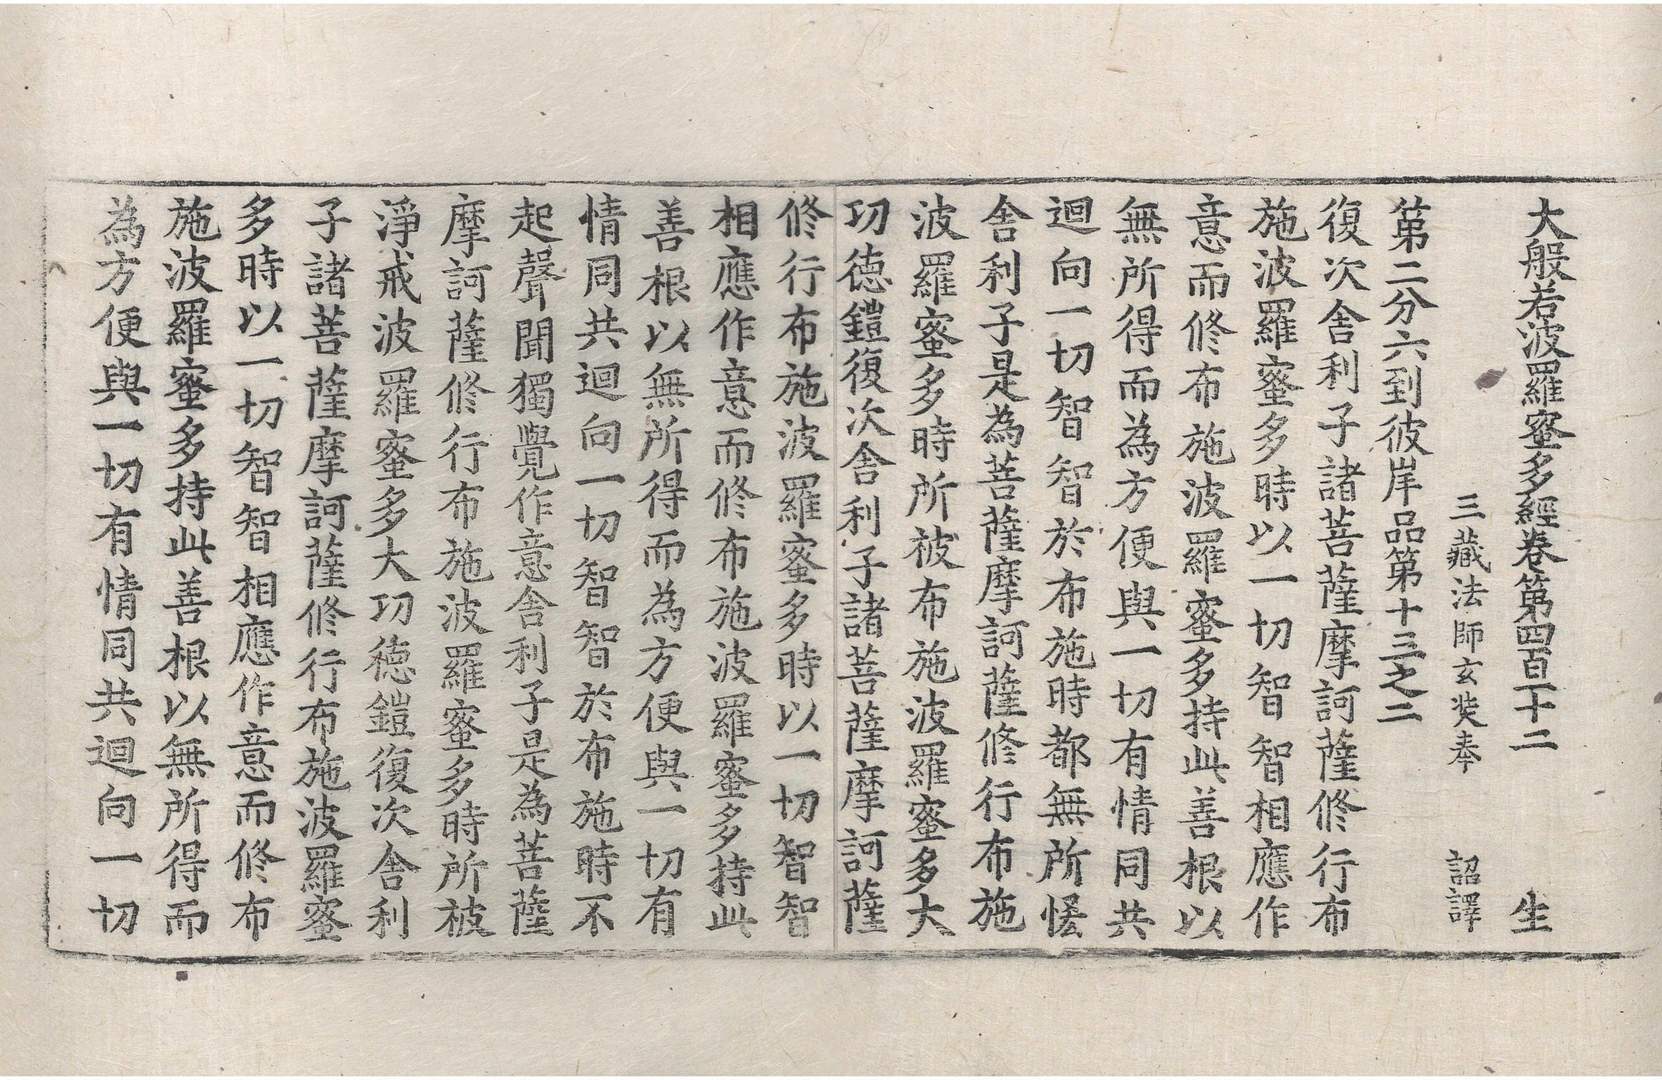 大般若波羅蜜多經卷第四百十二 生
三藏法師玄奘奉 詔譯
第二分六到彼岸品第十三之二
復次舍利子諸菩薩摩訶薩修行布
施波羅蜜多時以一切智智相應作
意而修布施波羅蜜多持此善根以
無所得而為方便與一切有情同共
迴向一切智智於布施時都無所悋
舍利子是為菩薩摩訶薩修行布施
波羅蜜多時所被布施波羅蜜多大
功德鎧復次舍利子諸菩薩摩訶薩
修行布施波羅蜜多時以一切智智
相應作意而修布施波羅蜜多持此
善根以無所得而為方便與一切有
情同共迴向一切智智於布施時不
起聲聞獨覺作意舍利子是為菩薩
摩訶薩修行布施波羅蜜多時所被
淨戒波羅蜜多大功德鎧復次舍利
子諸菩薩摩訶薩修行布施波羅蜜
多時以一切智智相應作意而修布
施波羅蜜多持此善根以無所得而
為方便與一切有情同共迴向一切